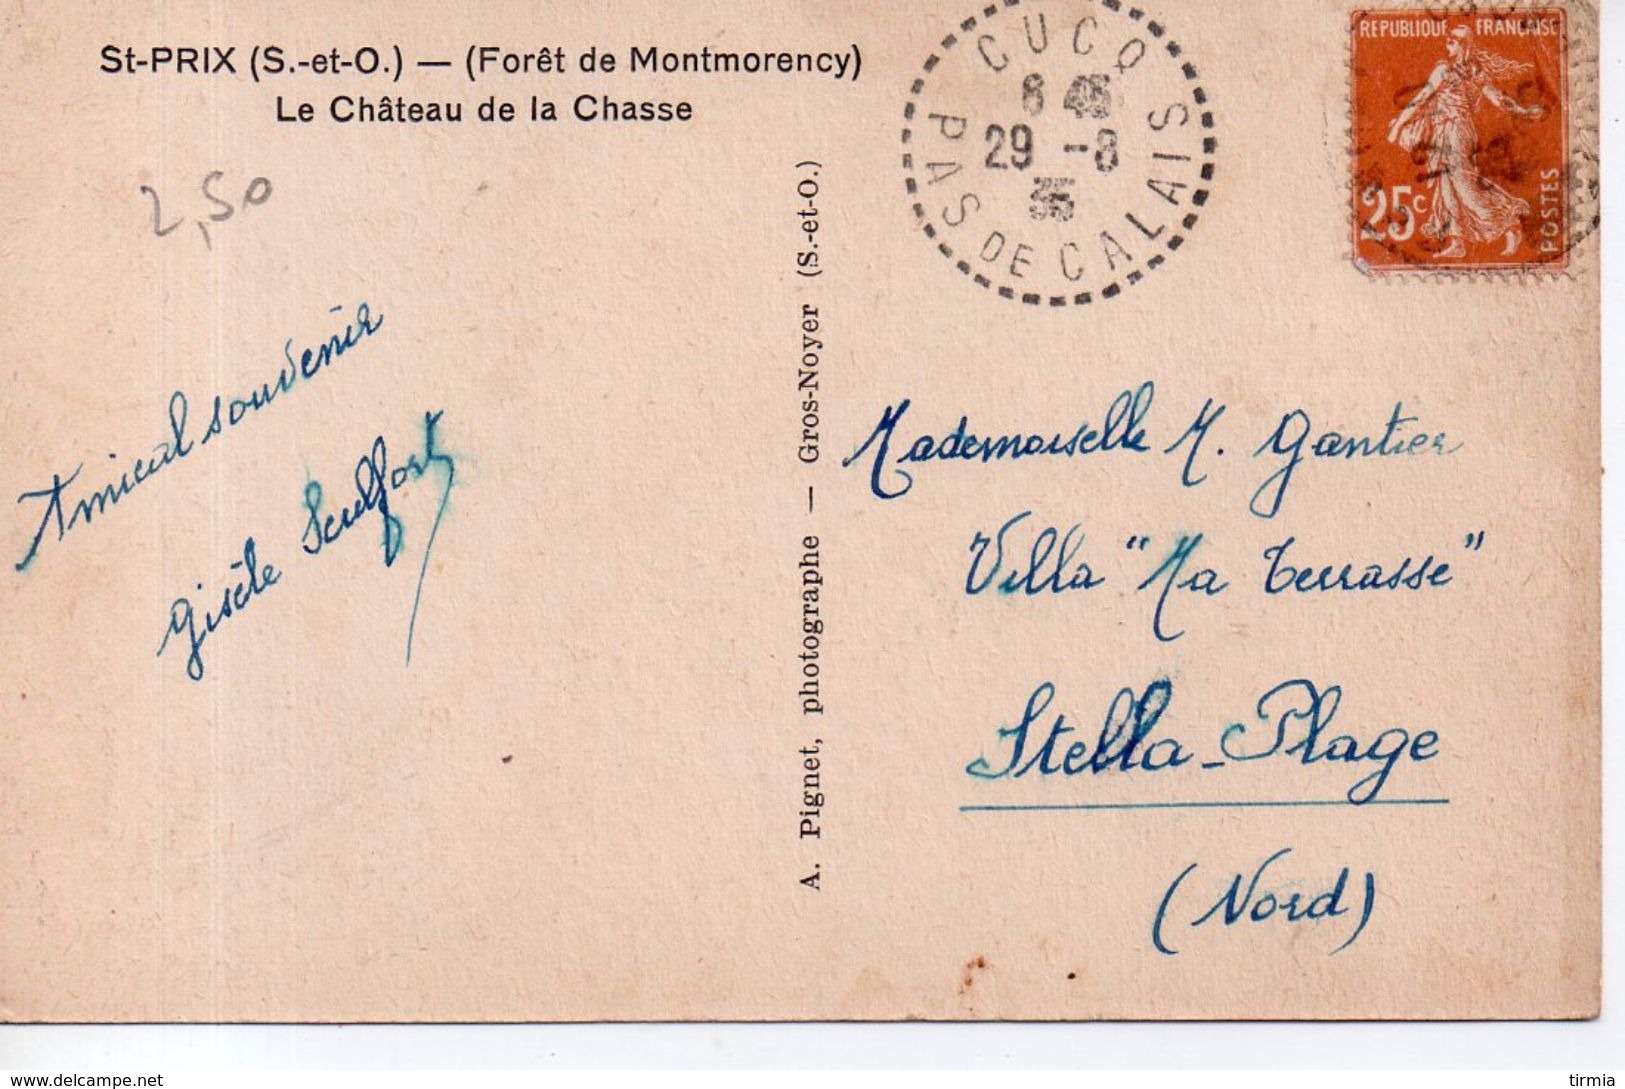 St-PRIX (S.-et-O.) — (Forêt de Montmorency)
Le Château de la Chasse
2,50
Amical souvenir
Gisèle
A. Pignet, photographe — Gros-Noyer (S.-et-O.)
CUCQ
29 -8
35
PAS DE CALAIS
REPUBLIQUE FRANÇAISE
25c
POSTES
Mademoiselle M. Gantier
Villa "Ma Terrasse"
Stella-Plage
(Nord)
www.delcampe.net
tirmia